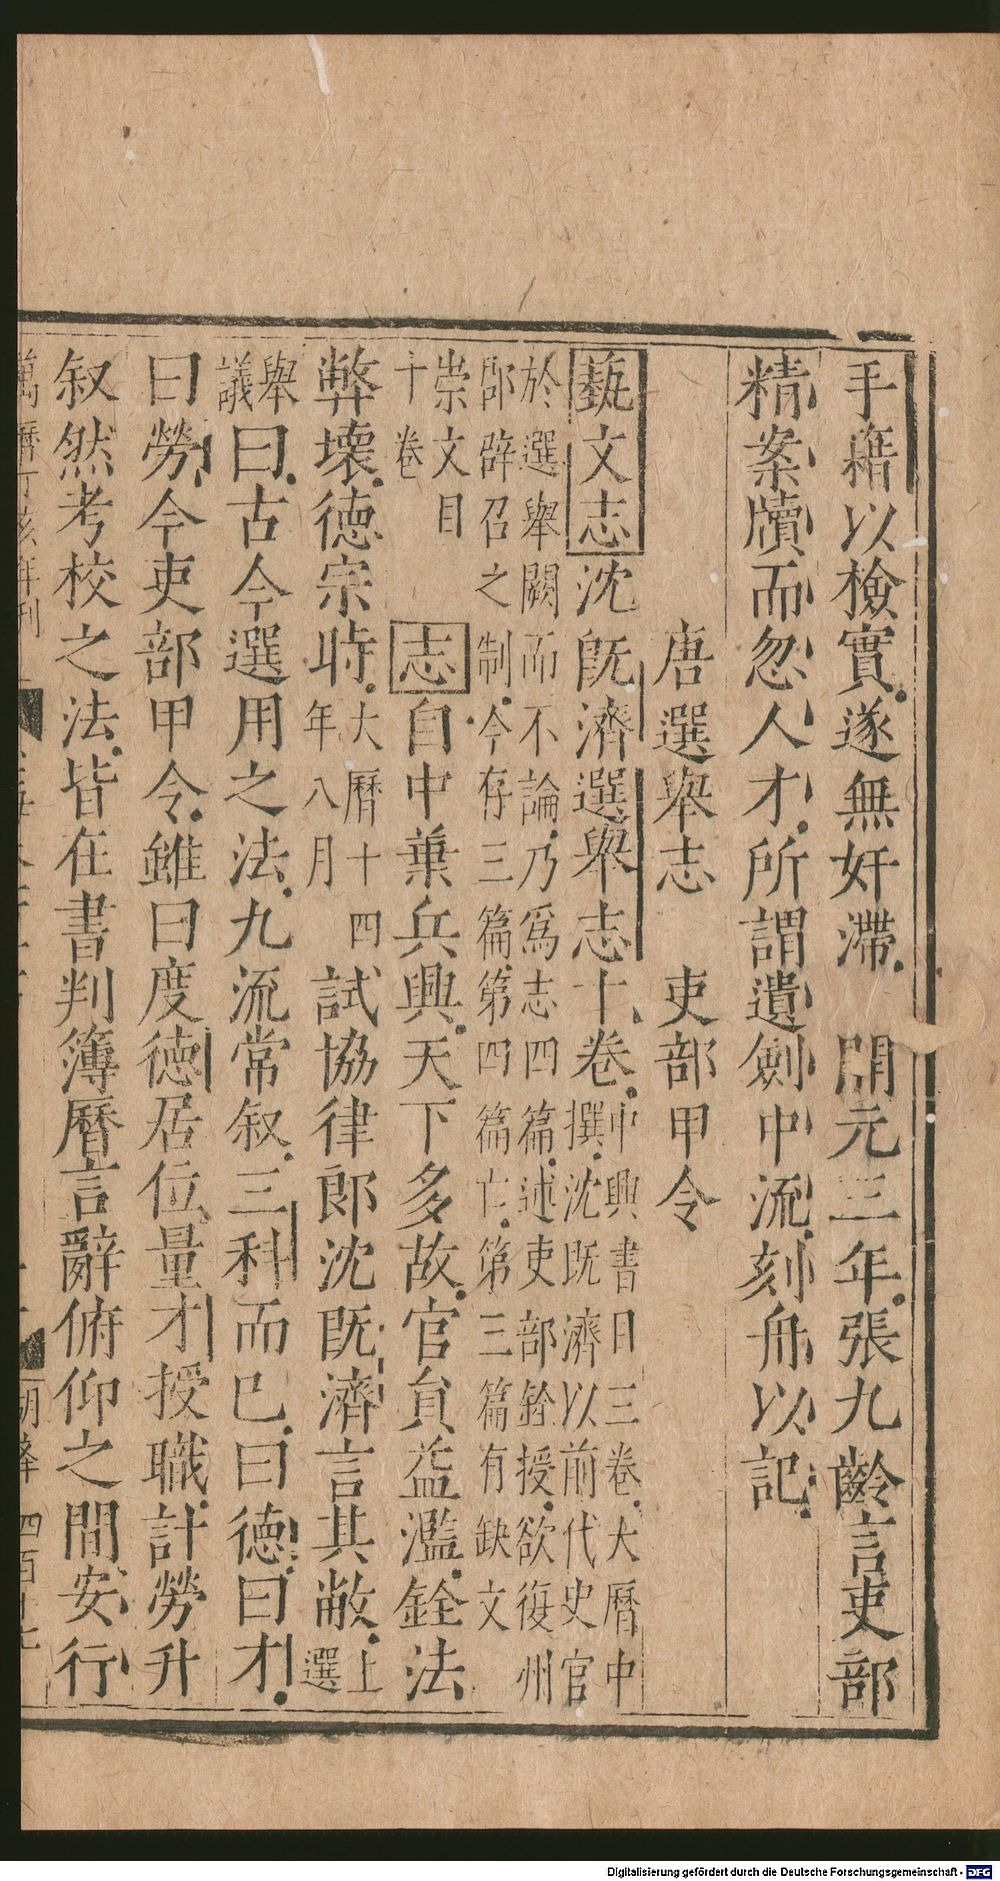 手藉以檢實遂無奸滯　開元三年張九齡言吏部
精案牘而忽人才所謂遺劍中流刻舟以記
唐選舉志　吏部甲令
藝文志沈旣濟選舉志十卷中興書目三卷大曆中
撰沈既濟以前代史官
於選舉闕而不論乃爲志四篇述吏部銓授欲復州
郎辟召之制今存三篇第四篇亡第三篇有缺文
崇文目
十卷
志自中葉兵興天下多故官負益濫銓法
弊壞德宗時大曆十四
年八月試協律郎沈既濟言其敝上
選
舉
議曰古今選用之法九流常叙三科而已曰德曰才
曰勞今吏部甲令雖曰度德居位量才授職計勞升
叙然考校之法皆在書判簿曆言辭俯仰之間安行
萬曆丁亥年刊
四百十七
Digitalisierung gefördert durch die Deutsche Forschungsgemeinschaft - DFG